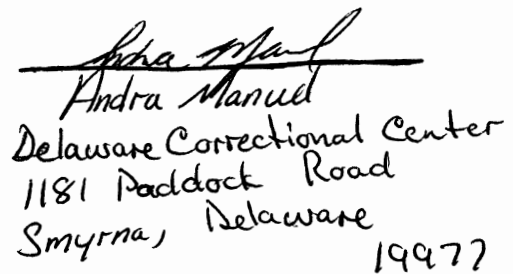 Andra Manuel
Delaware Correctional Center
1181 Paddock Road
Smyrna, Delaware
19977